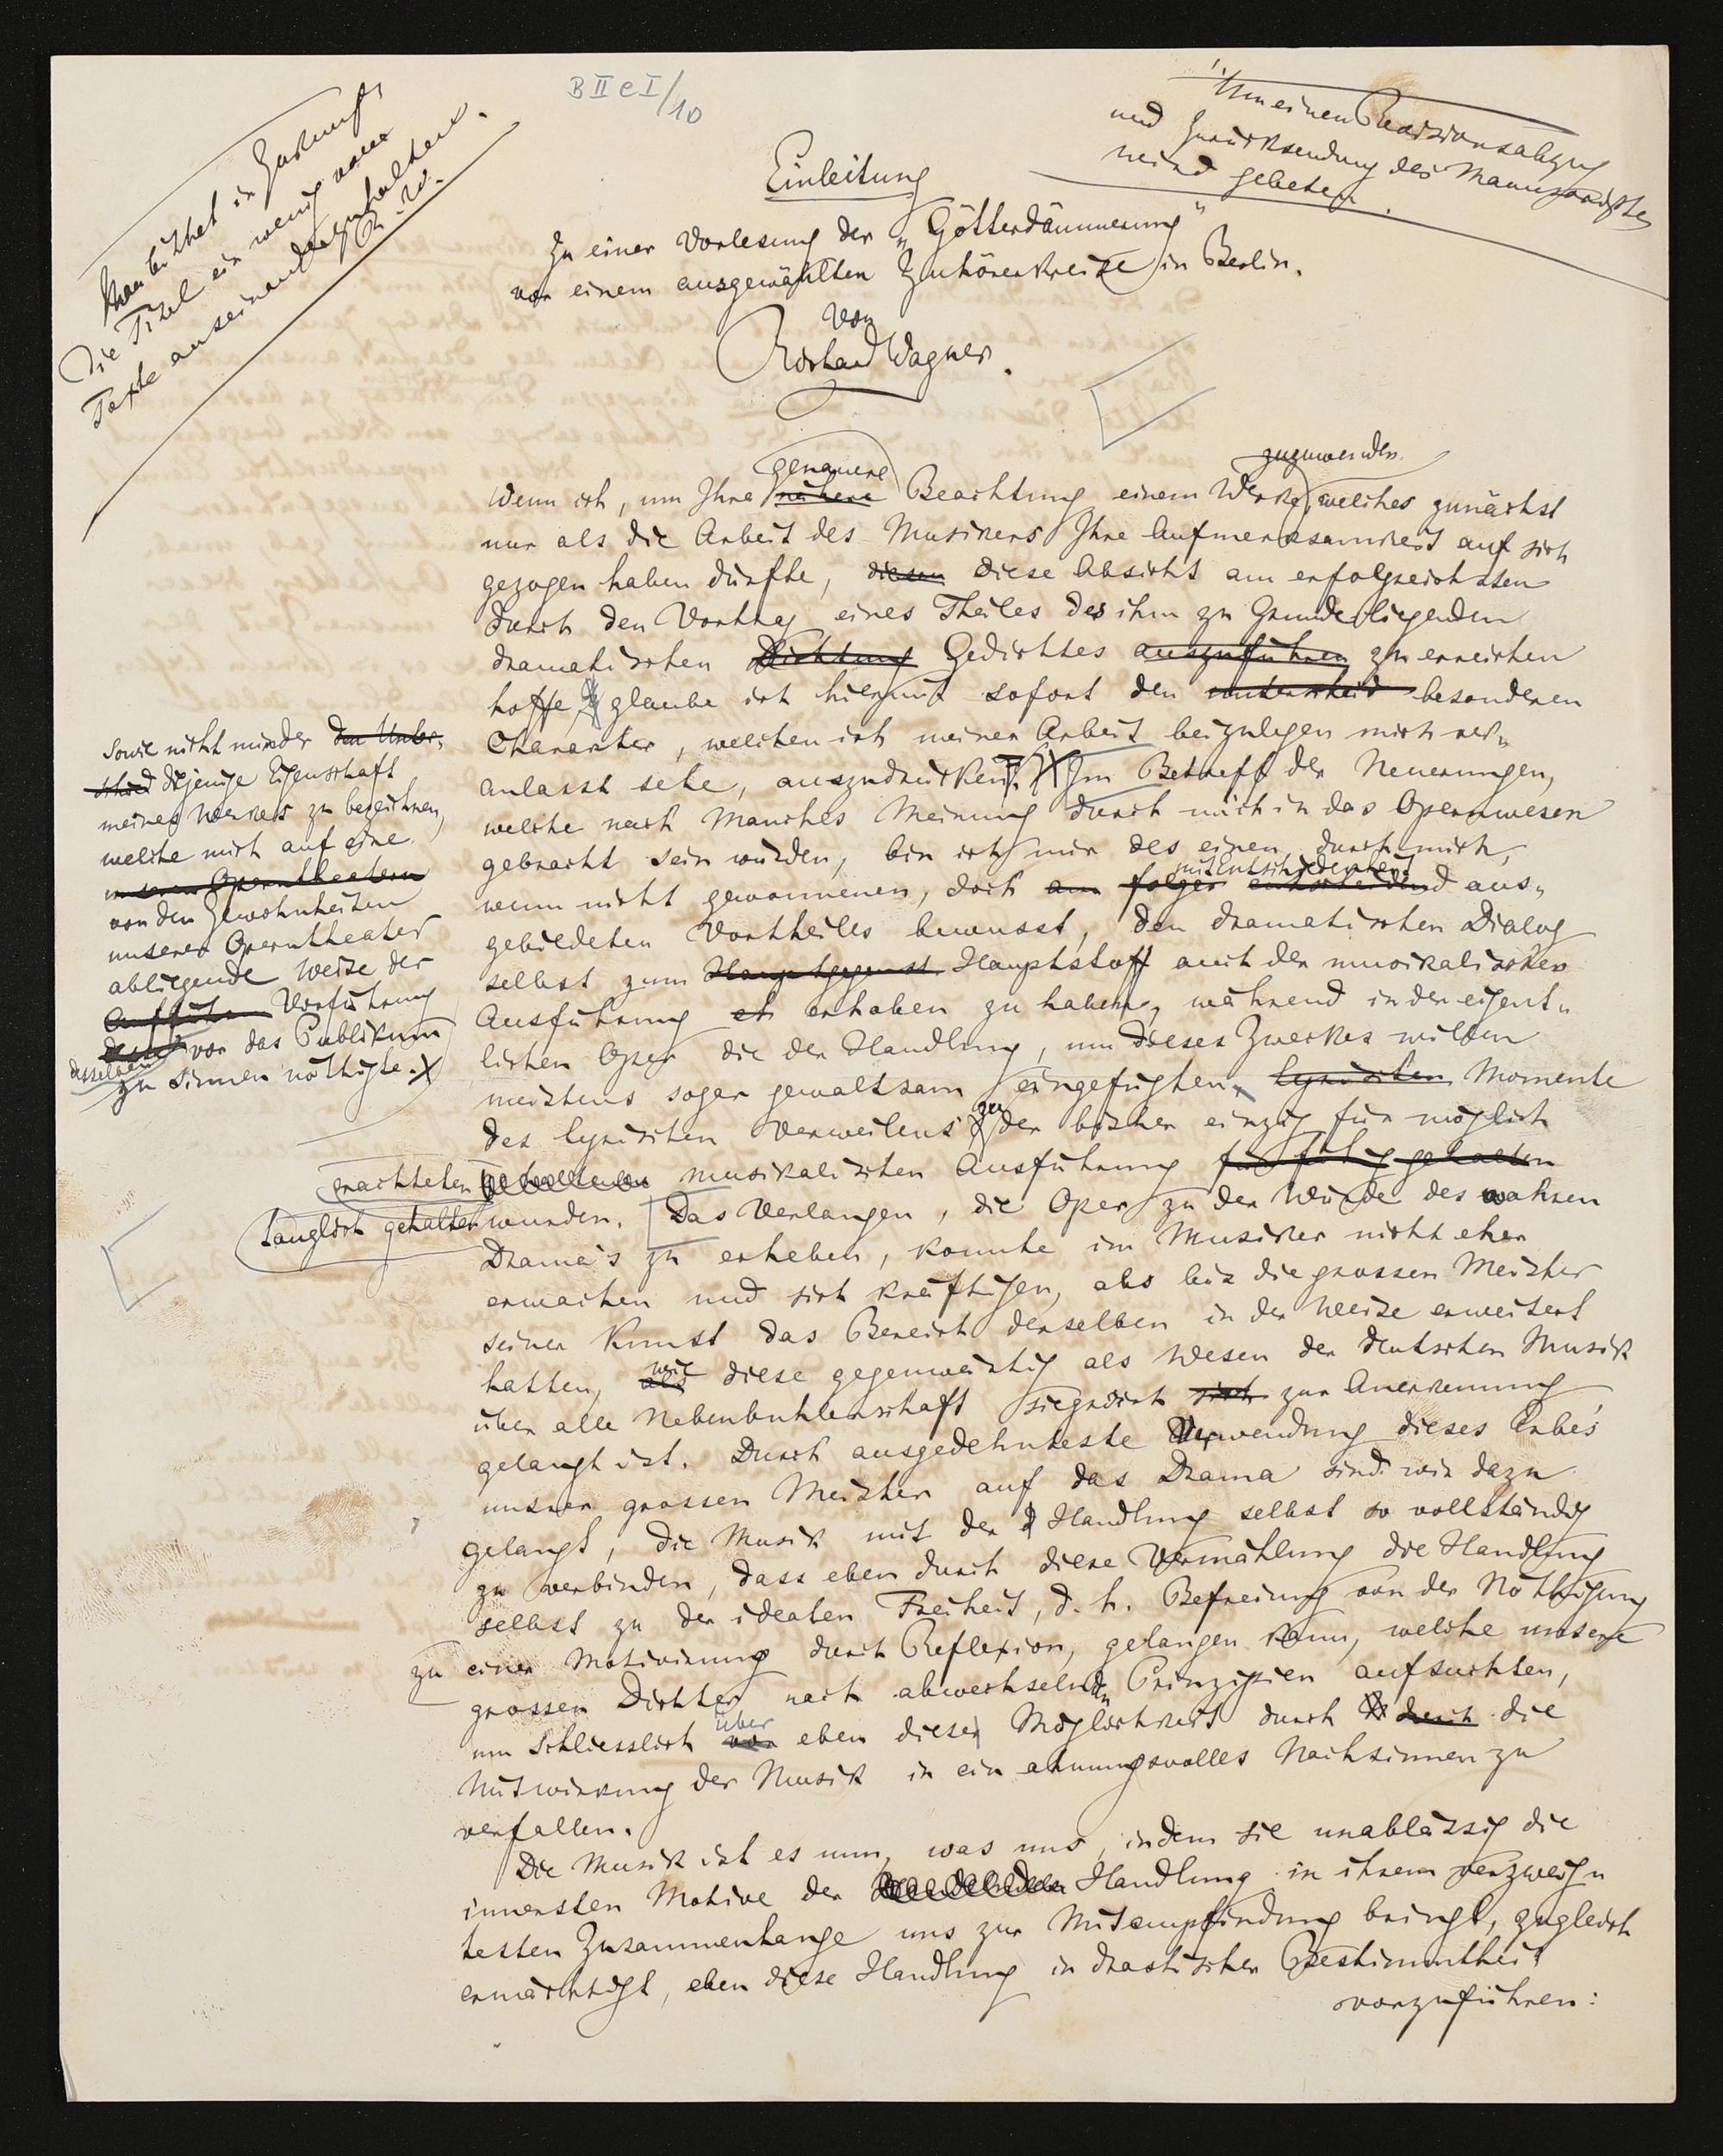 B II e I/10
Man bittet in Zukunft
die Titel ein wenig vom
Texte auseinanderzuhalten.
R. W.
Um einen Revisionsabzug
und Zurücksendung des Manuscriptes
wird gebeten.
Einleitung
Zu einer Vorlesung der „Götterdämmerung"
vor einem ausgewählten Zuhörerkreise in Berlin.
Von
Richard Wagner.
genauere zuzuwenden
Wenn ich, um Ihre nähere Beachtung einem Werke, welches zunächst
nur als die Arbeit des Musikers Ihre Aufmerksamkeit auf sich
gezogen haben dürfte, diesen diese Absicht am erfolgreichsten
durch den Vortrag eines Theiles des ihm zu Grunde liegenden
dramatischen Dichtung Gedichtes auszuführen zu erreichen
hoffe, glaube ich hiermit sofort den besonderen
Charakter, welchen ich meiner Arbeit beizulegen mich ver„
anlasst sehe, auszudrücken, Im Betreff der Neuerungen,
welche nach Manches Meinung durch mich in das Opernwesen
gebracht sein würden, bin ich mir des einen, durch mich,
mit Entschiedenheit
wenn nicht gewonnenen, doch am folger entscheidend aus„
gebildeten Vortheiles bewusst, den dramatischen Dialog
selbst zum Hauptgegenst Hauptstoff auch der musikalischen
Ausführung er erhoben zu haben, während in der eigent„
lichen Oper die der Handlung, um dieses Zweckes willen
meistens sogar gewaltsam eingefügten, lyrischen Momente
des lyrischen Verweilens zu der bisher einzig für möglich
erachteten gehaltenen musikalischen Ausführung für fähig gehalten
tauglich gehalten wurden. Das Verlangen, die Oper zu der Würde des wahren
Drama's zu erheben, konnte im Musiker nicht eher
erwachen und sich kräftigen, als bis die grossen Meister
seiner Kunst das Bereich derselben in der Weise erweitert
wie
hatten, als diese gegenwärtig als Wesen der deutschen Musik
über alle Nebenbuhlerschaft siegreich sich zur Anerkennung
gelangt ist. Durch ausgedehnteste Verwendung dieses Erbe's
unsrer grossen Meister auf das Drama sind wir dazu
gelangt, die Musik mit der Handlung selbst so vollständig
zu verbinden, dass eben durch diese Vermählung die Handlung
selbst zu der idealen Freiheit, d. h. Befreiung von der Nöthigung
zu einer Motivirung durch Reflexion, gelangen kann, welche unsere
grossen Dichter nach abwechselnden Prinzipien aufsuchten,
über
um schliesslich von eben dieser Möglichkeit durch durch die
Mitwirkung der Musik in ein ahnungsvolles Nachsinnen zu
verfallen.
Die Musik ist es nun, was uns, indem sie unablässig die
innersten Motive der Handlung in ihrem verzweig„
testen Zusammenhange uns zur Mitempfindung bringt, zugleich
ermächtigt, eben diese Handlung in drastischer Bestimmtheit
vorzuführen:
sowie nicht minder den Unter„
schied diejenige Eigenschaft
meines Werkes zu bezeichnen,
welche mich auf eine
unseren Operntheatern
von den Gewohnheiten
unserer Operntheater
abliegende Weise der
Aufführ Vorführung
desselben vor das Publikum
zu sinnen nöthigte. X